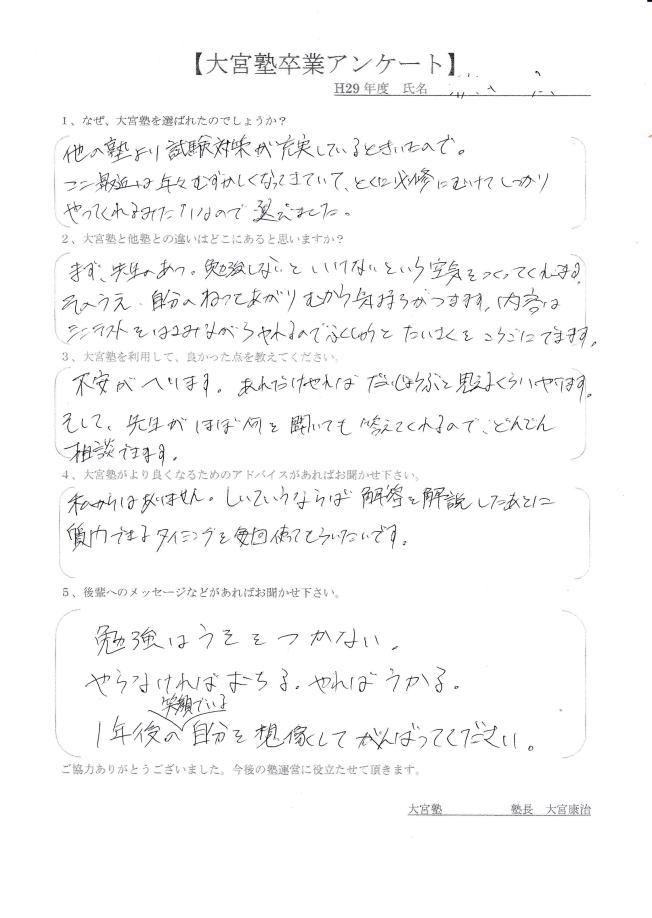 【大宮塾卒業アンケート】
H29年度 氏名
1、なぜ、大宮塾を選ばれたのでしょうか？
他の塾より試験対策が充実しているときいたので。
ここ最近は年々むずかしくなってきていて、とくに必修にむけてしっかり
やってくれるみたいなので選びました。
2、大宮塾と他塾との違いはどこにあると思いますか？
まず、先生のあつ。勉強しないといけないという空気をつくってくれる。
そのうえ、自分の
内容は
ミニテストをはさみながらやれるのでふくしゅうとたいさくをこうごにできます。
3、大宮塾を利用して、良かった点を教えてください。
不安がへります。あれだけやればだいじょうぶと思えるくらいやります。
そして、先生がほぼ何を聞いても答えてくれるので、どんどん
相談できます。
4、大宮塾がより良くなるためのアドバイスがあればお聞かせ下さい。
私からはありません。しいていうならば解答を解説したあとに
質問できるタイミングを毎回作ってもらいたいです。
5、後輩へのメッセージなどがあればお聞かせ下さい。
勉強はうそをつかない。
やらなければおちる。やればうかる。
笑顔でいる
1年後の自分を想像してがんばってください。
ご協力ありがとうございました。今後の塾運営に役立たせて頂きます。
大宮塾 塾長 大宮康治